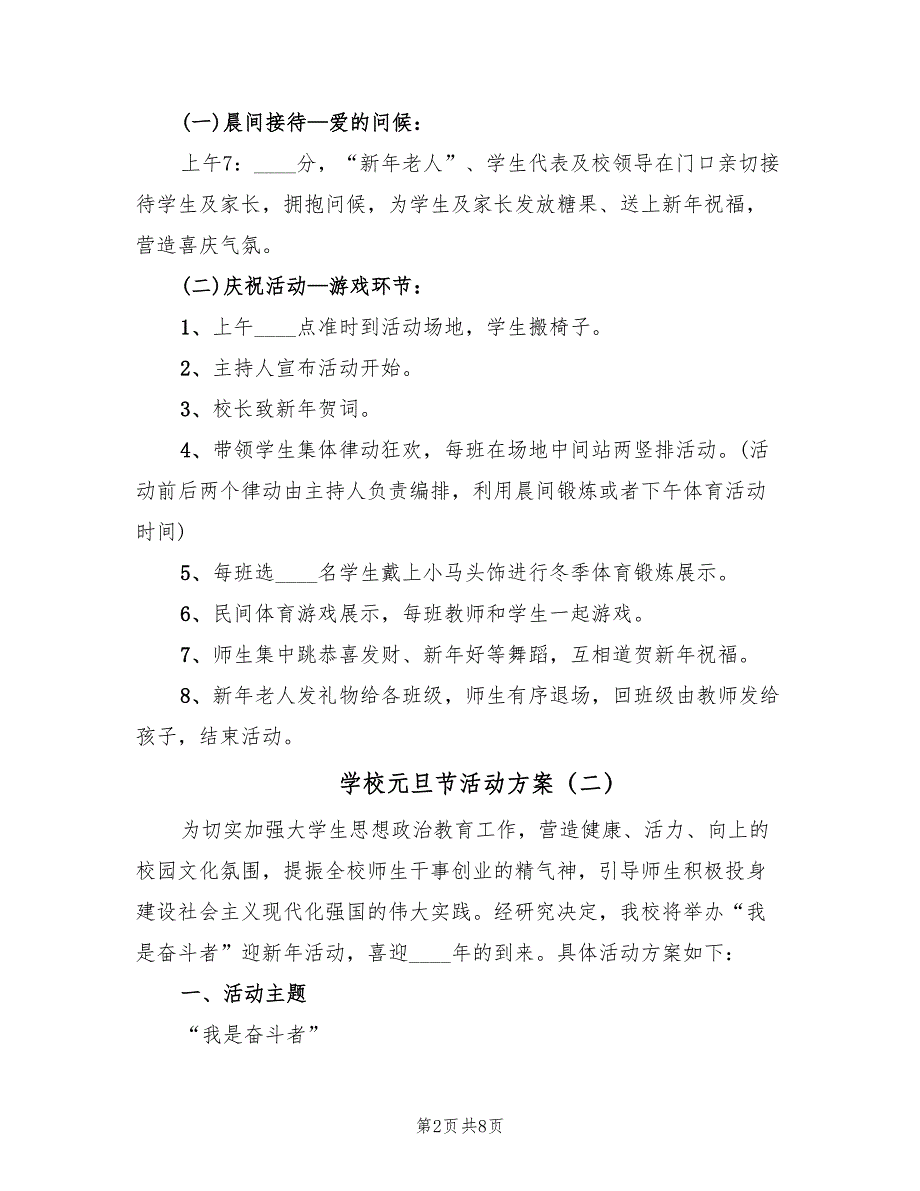 (一)晨间接待—爱的问候：
上午7：____分，“新年老人”、学生代表及校领导在门口亲切接
待学生及家长，拥抱问候，为学生及家长发放糖果、送上新年祝福，
营造喜庆气氛。
(二)庆祝活动—游戏环节：
1、上午____点准时到活动场地，学生搬椅子。
2、主持人宣布活动开始。
3、校长致新年贺词。
4、带领学生集体律动狂欢，每班在场地中间站两竖排活动。(活
动前后两个律动由主持人负责编排，利用晨间锻炼或者下午体育活动
时间)
5、每班选____名学生戴上小马头饰进行冬季体育锻炼展示。
6、民间体育游戏展示，每班教师和学生一起游戏。
7、师生集中跳恭喜发财、新年好等舞蹈，互相道贺新年祝福。
8、新年老人发礼物给各班级，师生有序退场，回班级由教师发给
孩子，结束活动。
学校元旦节活动方案（二）
为切实加强大学生思想政治教育工作，营造健康、活力、向上的
校园文化氛围，提振全校师生干事创业的精气神，引导师生积极投身
建设社会主义现代化强国的伟大实践。经研究决定，我校将举办“我
是奋斗者”迎新年活动，喜迎____年的到来。具体活动方案如下：
一、活动主题
“我是奋斗者”
第2页 共8页